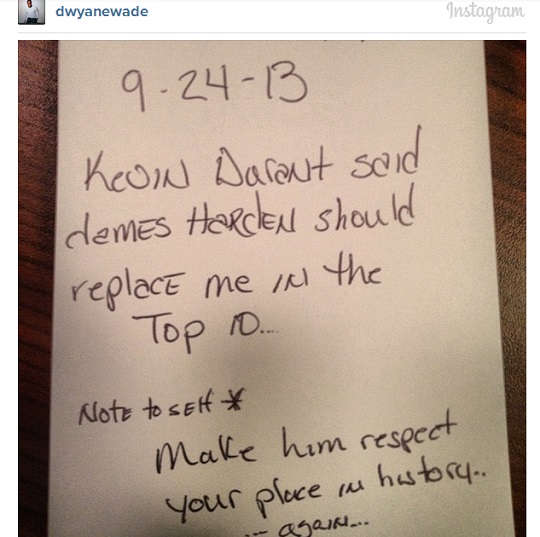 dwyanewade
Instagram
9-24-13
Kevin Durant said
James Harden should
replace me in the
Top 10...
Note to self *
Make him respect
your place in history..
... again...